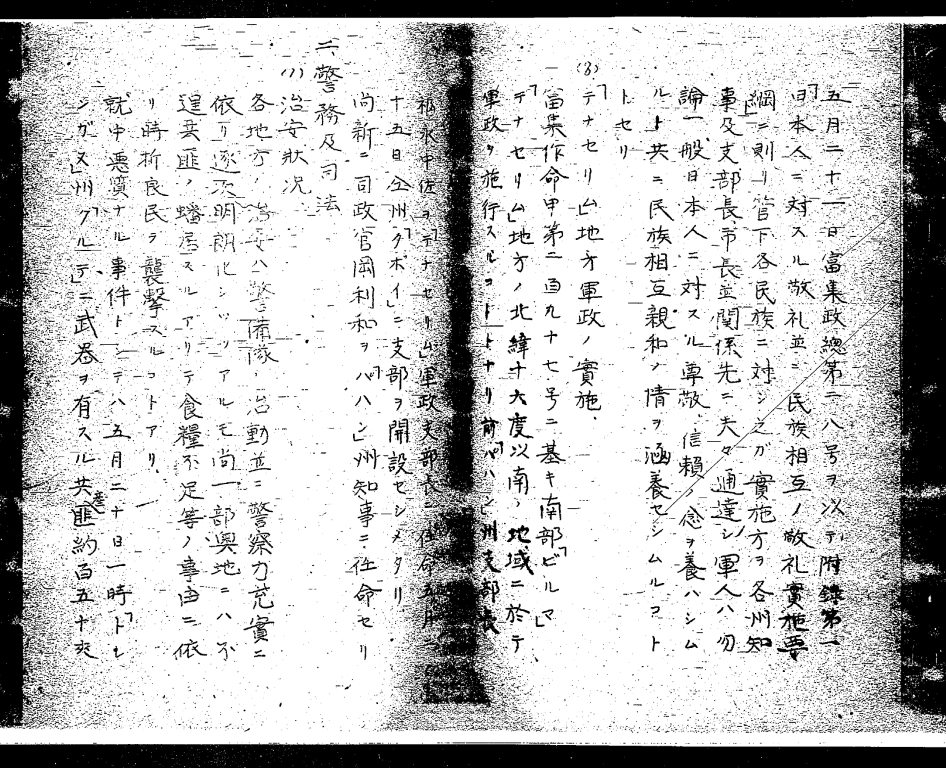 五月二十一日富集政總第二八号ヲ以テ附録第一
「日本人ニ対スル敬礼並ニ民族相互ノ敬礼実施要
綱」ニ則リ管下各民族ニ対シ之ガ實施方ヲ各州知
事及支部長市長並關係先ニ夫々通達シ軍人ハ勿
論一般日本人ニ対スル尊敬、信頼ノ念ヲ養ハシム
ルト共ニ民族相互親和ノ情ヲ涵養セシムルコト
トセリ
(3)「テナセリム」地方軍政ノ實施
富集作命甲第二百九十七号ニ基キ南部「ビルマ」
「テナセリム」地方ノ北緯十六度以南ノ地域ニ於テ
軍政ヲ施行スルコトトナリ前「パハン」州支部長
永中佐ヲ「テナセリム」軍政支部長ニ任命五月二
十五日公州「クボイ」ニ支部ヲ開設セシメタリ
尚新ニ司政官岡利和ヲ「パハン」州知事ニ任命セリ
二、警務及司法
(1)治安狀況
各地方ノ治安ハ警備隊ノ活動並ニ警察力充實ニ
依リ逐次明朗化シツツアルモ尚一部奥地ニハ不
逞共匪ノ蟠居スルアリテ食糧不足等ノ事由ニ依
リ時折良民ヲ襲撃スルコトアリ
就中悪質ナル事件トシテハ五月二十日一時「トレ
ンガヌ」州「クルテ」ニ武器ヲ有スル共匪約百五十名